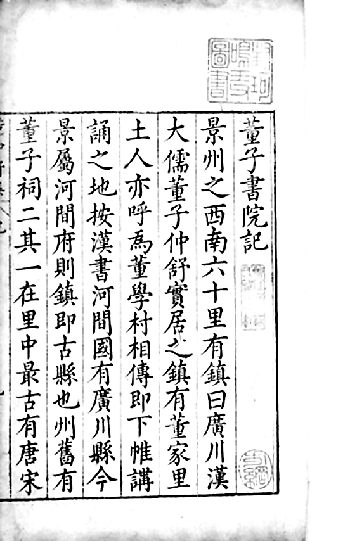 董子書院記
景州之西南六十里有鎮曰廣川漢
大儒董子仲舒實居之鎮有董家里
土人亦呼爲董學村相傳即下帷講
誦之地按漢書河間國有廣川縣今
景屬河間府則鎮即古縣也州舊有
董子祠二其一在里中最古有唐宋